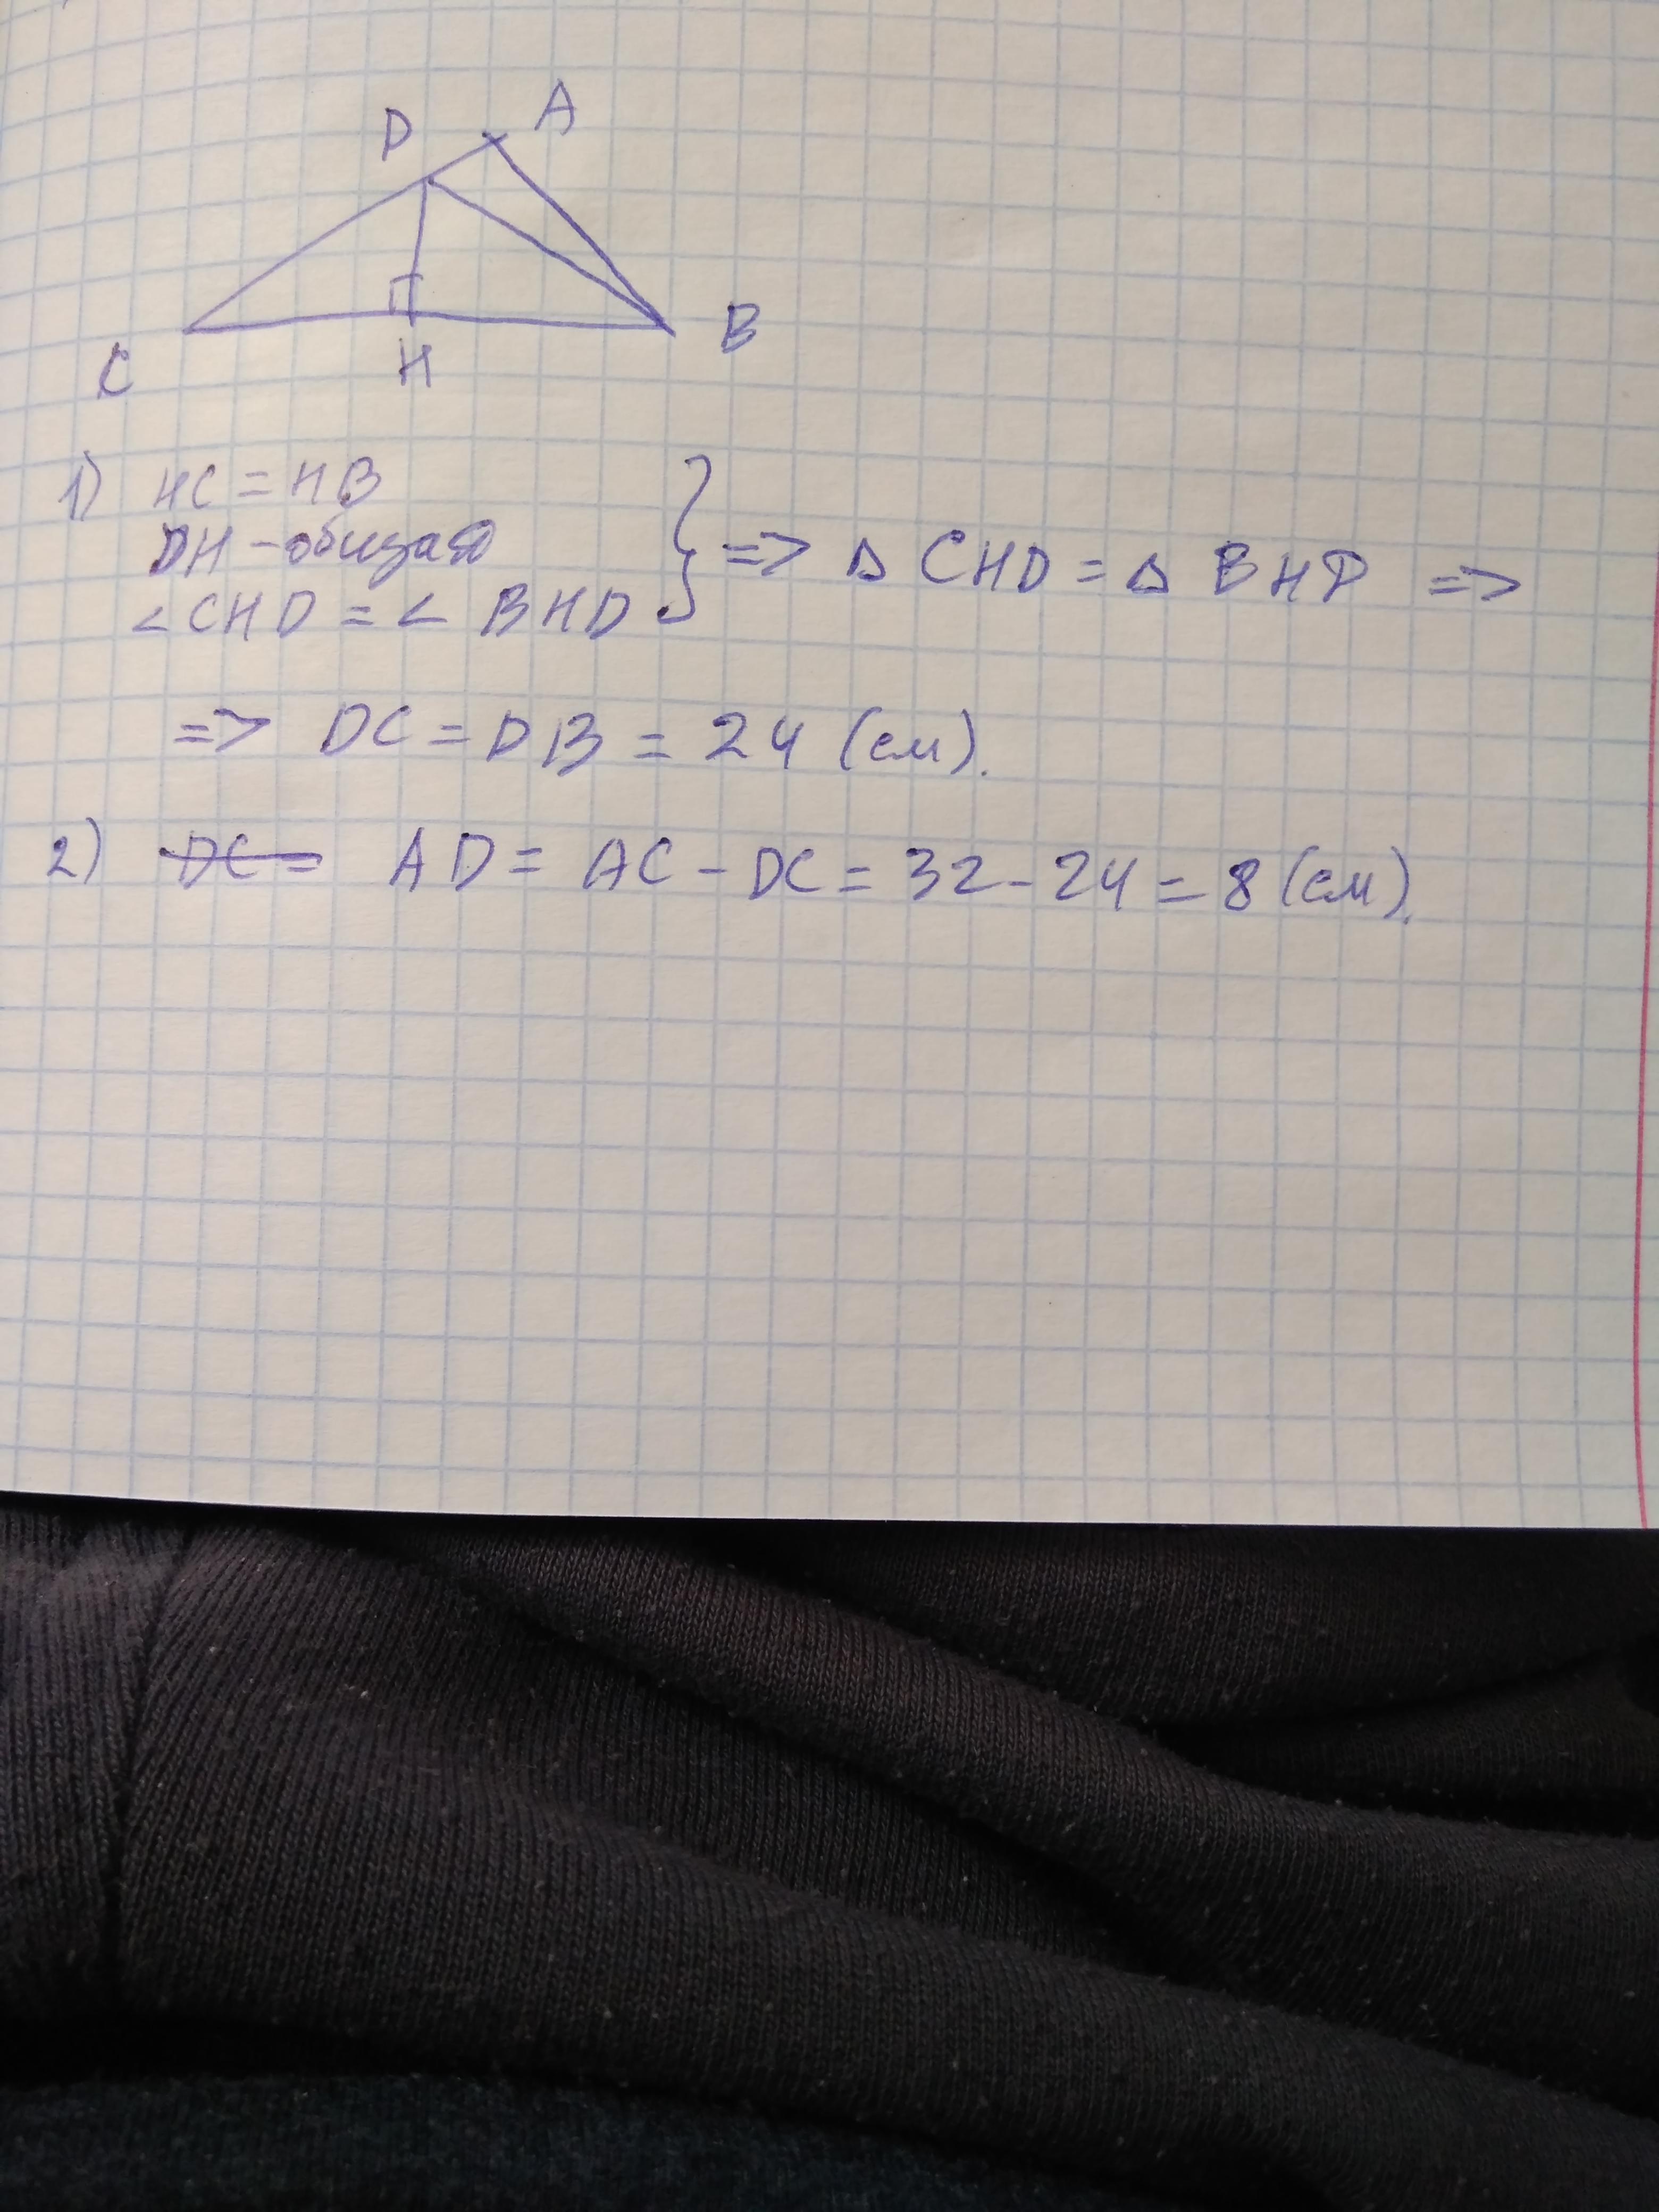 D A
C H B
1) HC = HB
DH - общая
∠CHD = ∠ BHD } => Δ CHD = Δ BHD =>
=> DC = DB = 24 (см).
2) DC = AD = AC - DC = 32 - 24 = 8 (см).